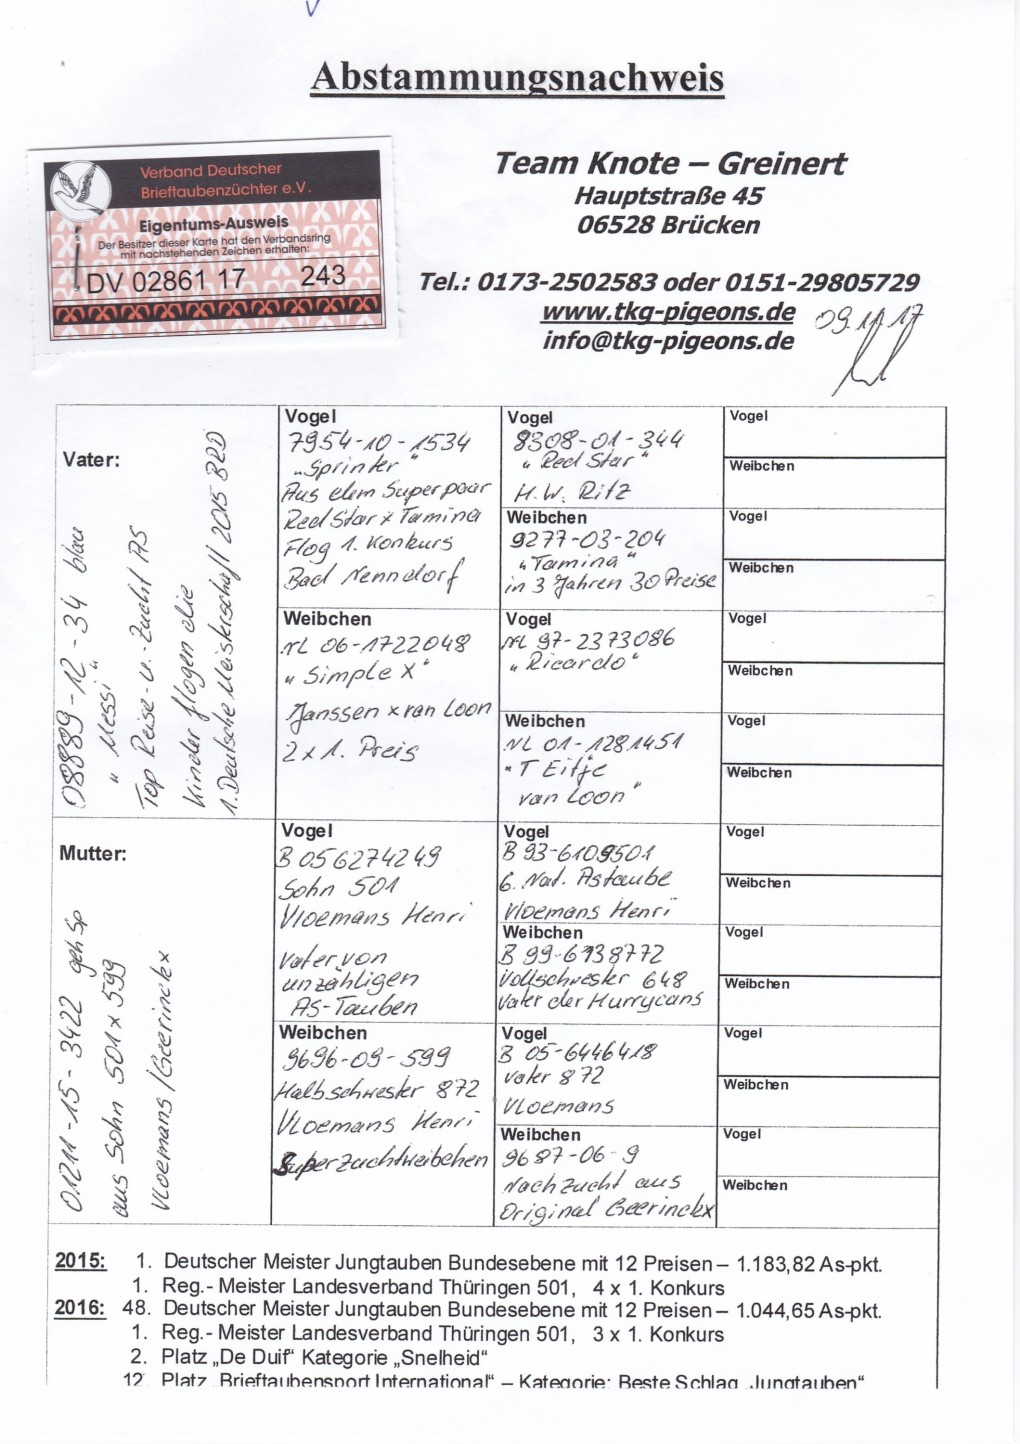 Abstammungsnachweis
Verband Deutscher
Brieftaubenzüchter e.V.
Eigentums-Ausweis
Der Besitzer dieser Karte hat den Verbandsring
mit nachstehenden Zeichen erhalten:
DV 02861 17 243
Team Knote – Greinert
Hauptstraße 45
06528 Brücken
Tel.: 0173-2502583 oder 0151-29805729
www.tkg-pigeons.de
info@tkg-pigeons.de
09.11.17
Vater:
08889-12-34 blau
"Messi"
Top Reise-u.-Zucht AS
Kinder flogen die
1. Deutsche Meisterschaft 2015 BRD
Vogel
7954-10-1534
„Sprinter“
Aus dem Superpaar
Red Star x Tamina
Flog 1. Konkurs
Bad Nenndorf
Weibchen
NL 06-1722048
„Simple X“
Janssen x van Loon
2 x 1. Preis
Vogel
8308-01-344
„Red Star“
H.W. Ritz
Weibchen
9277-03-204
„Tamina“
in 3 Jahren 30 Preise
Vogel
NL 97-2373086
„Ricardo“
Weibchen
NL 01-1281451
"T Eitje
van Loon"
Vogel
Weibchen
Vogel
Weibchen
Vogel
Weibchen
Vogel
Weibchen
Mutter:
01211-15-3422 geh Sp
aus Sohn 501 x 599
Vloemans/Geerinckx
Vogel
B 056274249
Sohn 501
Vloemans Henri
Vater von
unzähligen
AS-Tauben
Weibchen
9696-09-599
Halbschwester 872
Vloemans Henri
Superzuchtweibchen
Vogel
B 93-6109501
6. Nat. Astaube
Vloemans Henri
Weibchen
B 99-6138772
Vollschwester 648
Vater der Hurrycans
Vogel
B 05-6446418
Vater 872
Vloemans
Weibchen
9687-06-9
Nachzucht aus
Original Geerinckx
Vogel
Weibchen
Vogel
Weibchen
Vogel
Weibchen
Vogel
Weibchen
2015: 1. Deutscher Meister Jungtauben Bundesebene mit 12 Preisen – 1.183,82 As-pkt.
1. Reg.- Meister Landesverband Thüringen 501, 4 x 1. Konkurs
2016: 48. Deutscher Meister Jungtauben Bundesebene mit 12 Preisen – 1.044,65 As-pkt.
1. Reg.- Meister Landesverband Thüringen 501, 3 x 1. Konkurs
2. Platz „De Duif“ Kategorie „Snelheid“
12. Platz „Brieftaubensport International“ – Kategorie: Beste Schlag „Jungtauben“